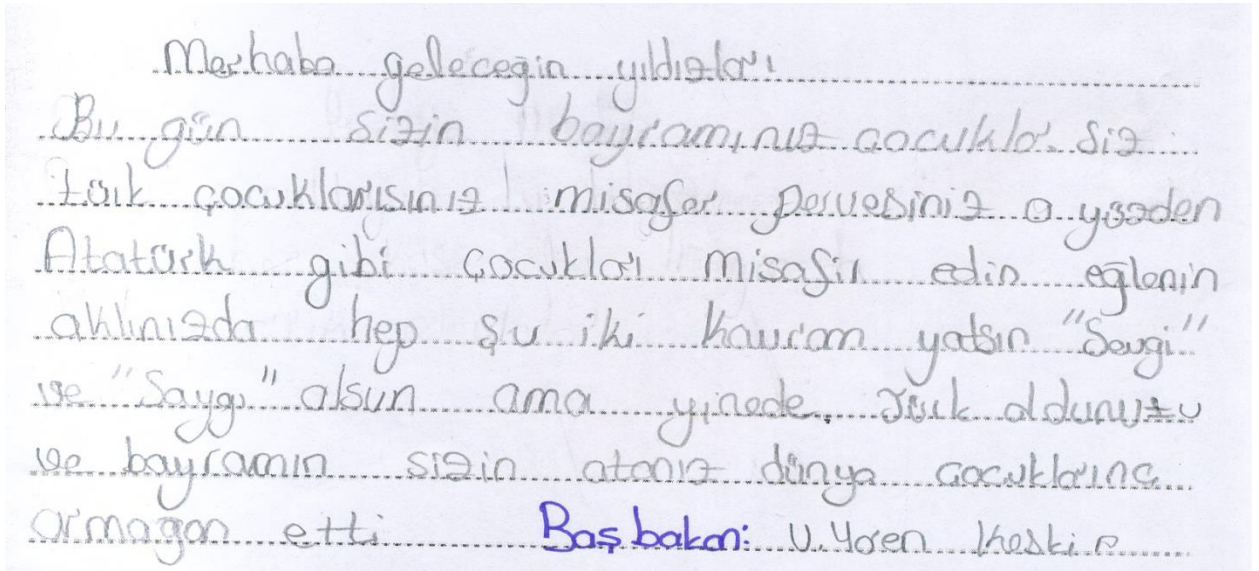 Merhaba geleceğin yıldızları
Bu gün sizin bayramınız çocuklar. Siz
türk çocuklarısınız misafer pervesiniz o yüzden
Atatürk gibi çocukları misafir edin eğlenin
aklınızda hep şu iki kavram yatsın "Sevgi"
ve "Saygı" olsun ama yinede, Türk oldunuzu
ve bayramın sizin atanız dünya çocuklarına
armağan etti Başbakan: U. Keskin